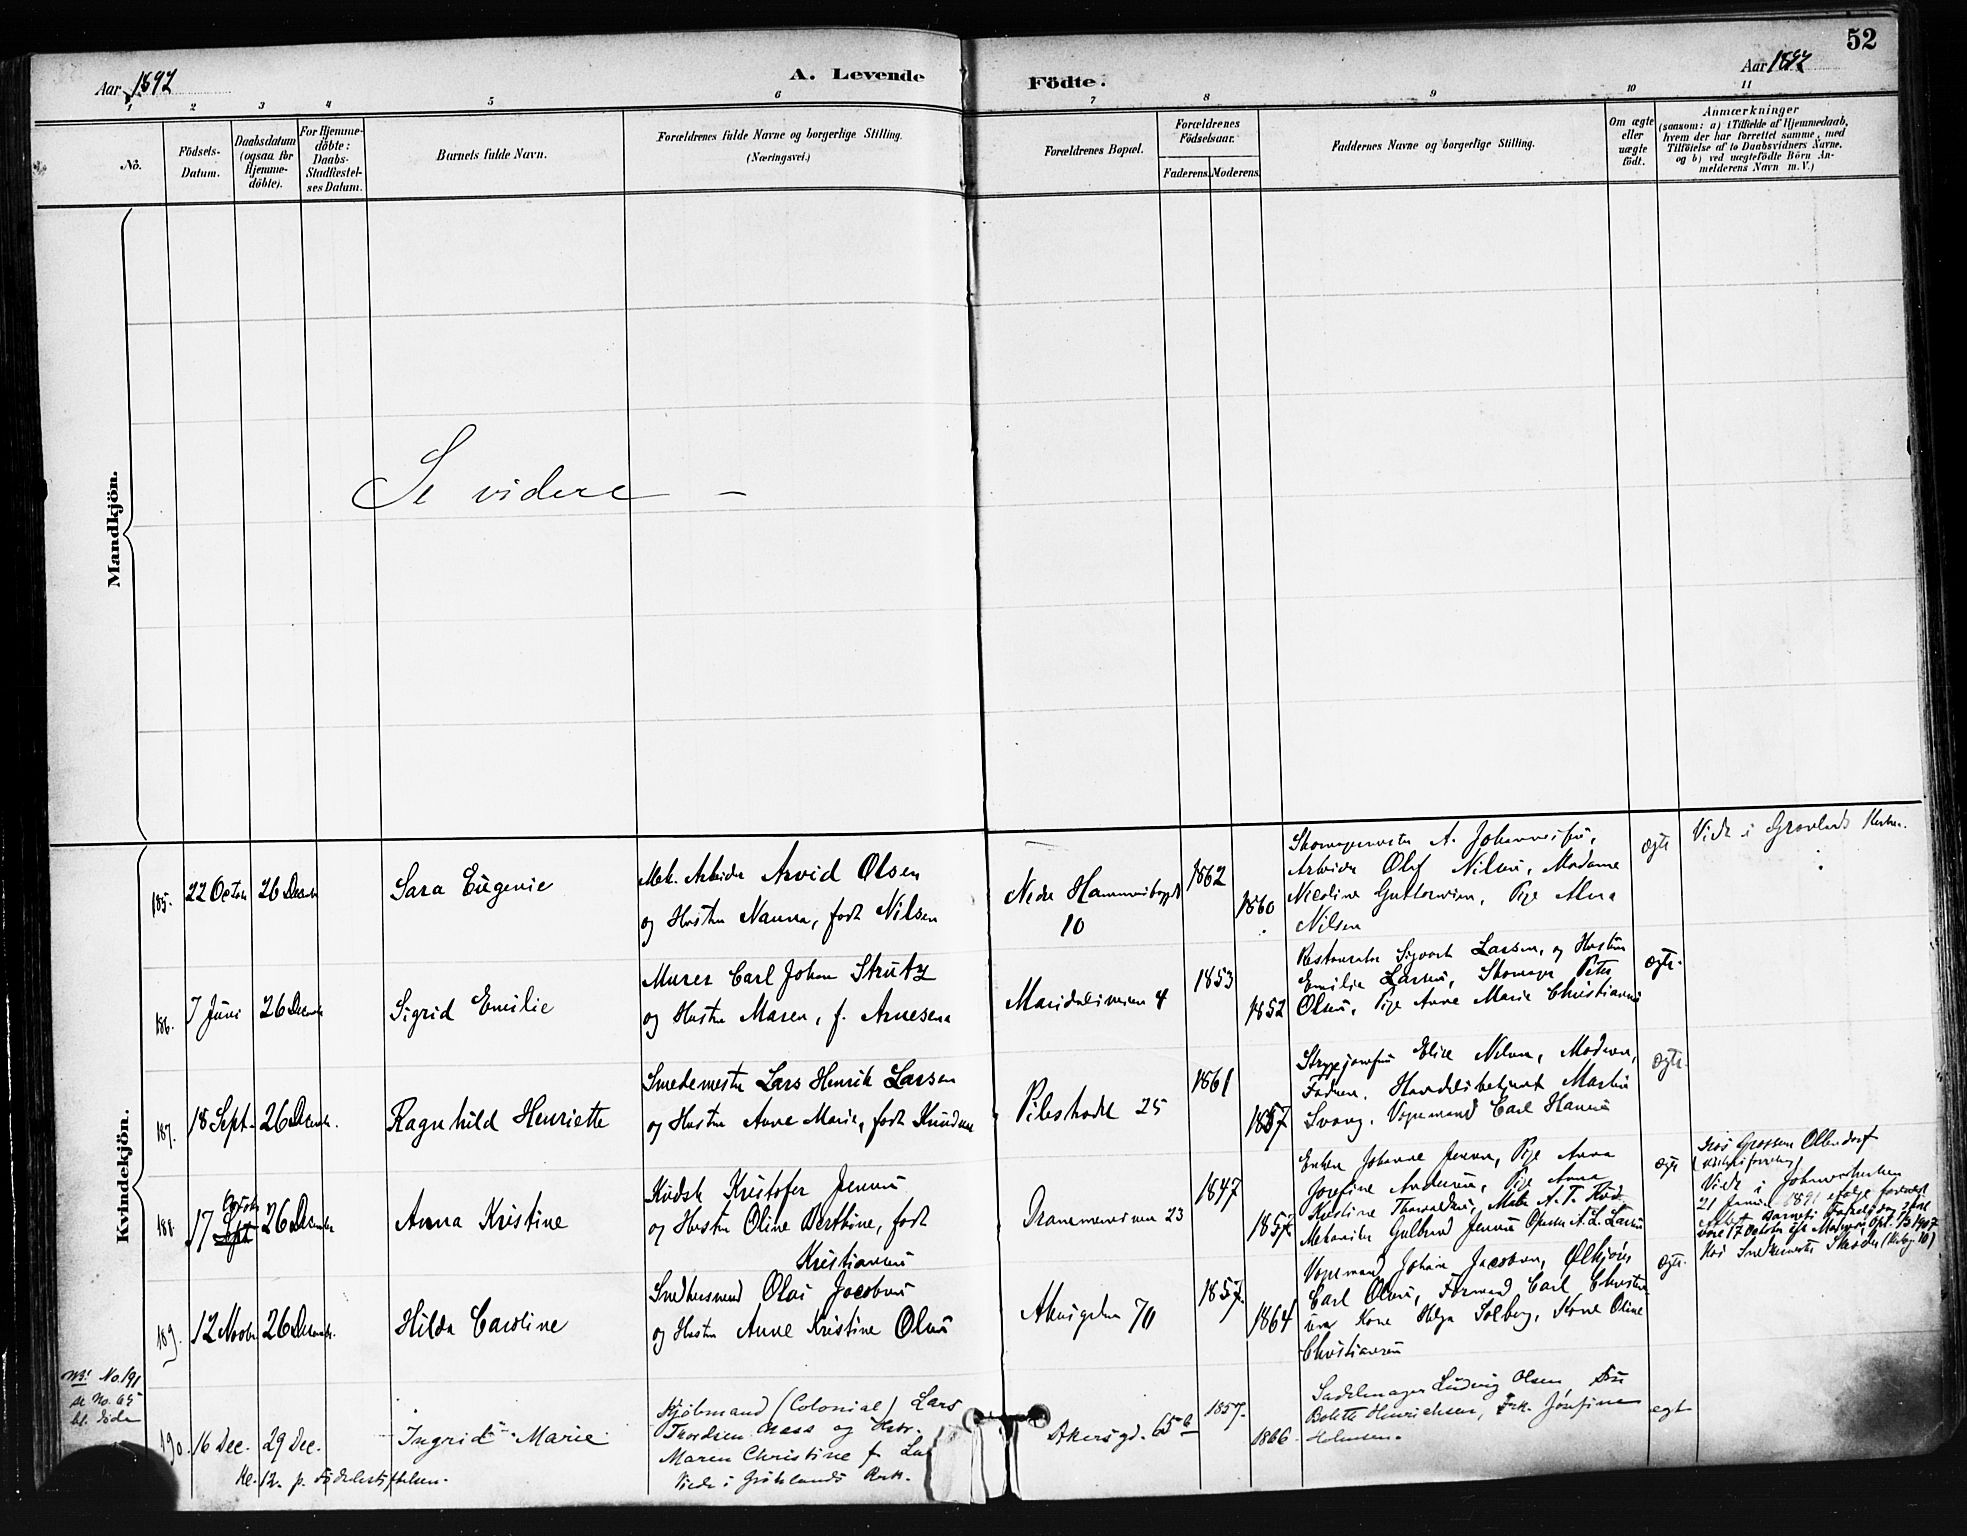 52
Aar 1892
A. Levende Födte.
Aar 1892
1 2 3 4 5 6 7 8 9 10 11
No.
Födsels-Datum.
Daabsdatum (ogsaa for Hjemme-döbte).
For Hjemme-döbte: Daabs-Stadfæstel-ses Datum.
Barnets fulde Navn.
Forældrenes fulde Navne og borgerlige Stilling.
(Næringsvei.)
Forældrenes Bopæl.
Forældrenes Födselsaar.
Faderens. Moderens.
Faddernes Navne og borgerlige Stilling.
Om ægte eller uægte födt.
Anmærkninger
(saasom: a) i Tilfælde af Hjemmedaab,
hvem der har forrettet samme, med
Tilföielse af to Daabsvidners Navne.
og b) ved uægtefödte Börn An-
melderens Navn m. V.)
Mandkjön.
Se videre –
Kvindekjön.
185. 22 Octbr 26 Decmbr Sara Eugenie
Mek. Arbeider Arvid Olsen
og Hustru Nanna, født Nilsen
Nedre
10
1862 1860
Skomagermester A. Johannesen,
Arbeider Olof Nilsen, Madame
Nicoline Guttormsen, Pige Alma
Nilsen
ægte
Viede i Grønlands Kirken.
186. 7 Juni 26 Decmbr Sigrid Emilie
Murer Carl Johan Strutz
og Hustru Maren, f. Arnesen
Maridalsveien 4
1853 1852
Restauratør Sigvart Larsen, og Hustru
Emilie Larsen, Skomager Peter
Olsen, Pige Anne Marie Christiansen
ægte.
187. 18 Sept. 26 Decmbr. Ragnhild Henriette
Smedemester Lars Henrik Larsen
og Hustru Anne Marie, født Knudsen
Pilestrædet 25
1861 1857
Elise Nilsen, Moderen,
Faderen, Handelsbetjent Martin
Svang, Vognmand Carl Hansen
ægte.
188. 17 Octbr Sept 26 Decmbr Anna Kristine
Kudsk Kristofer Jensen
og Hustru Oline Berthine, født
Kristiansen
Drammensveien 23
1847 1857.
Enken Johanne Jensen, Pige Anna
Josefine Andersen, Pige Anna
Kristine
Mekaniker Gulbrand Jensen
ægte
Hos Grosserer Ollendorf
Viede i Johanneskirken
21 Januar 1891 ifølge
Hos Smedemester
189. 12 Novbr 26 Decmbr. Hilda Caroline
Olai Jacobsen
og Hustru Anne Kristine Olsen
Akersgaden 70
1857. 1864
Vognmand Johan Jacobsen, Ølkjører
Carl Olsen, Formand Carl Christian-
sen Kone Helga Solberg, Kone Oline
Christiansen
ægte.
NB! No. 191
se No. 65
bl. døde
190. 16 Dec. 29 Dec. Ingrid Marie
Kjøbmand (Colonial) Lars
Thordsen Aass og Hstr.
Maren Christine f.
Viede i Grønlands Kirk.
Kl. 12. p. Fødselsstiftelsen.
Akersgd. 65 b
1857. 1866.
Sadelmager Ludvig Olsen, Fru
Bolette Henrichsen, Frk. Jósefine
Holmsen.
ægt